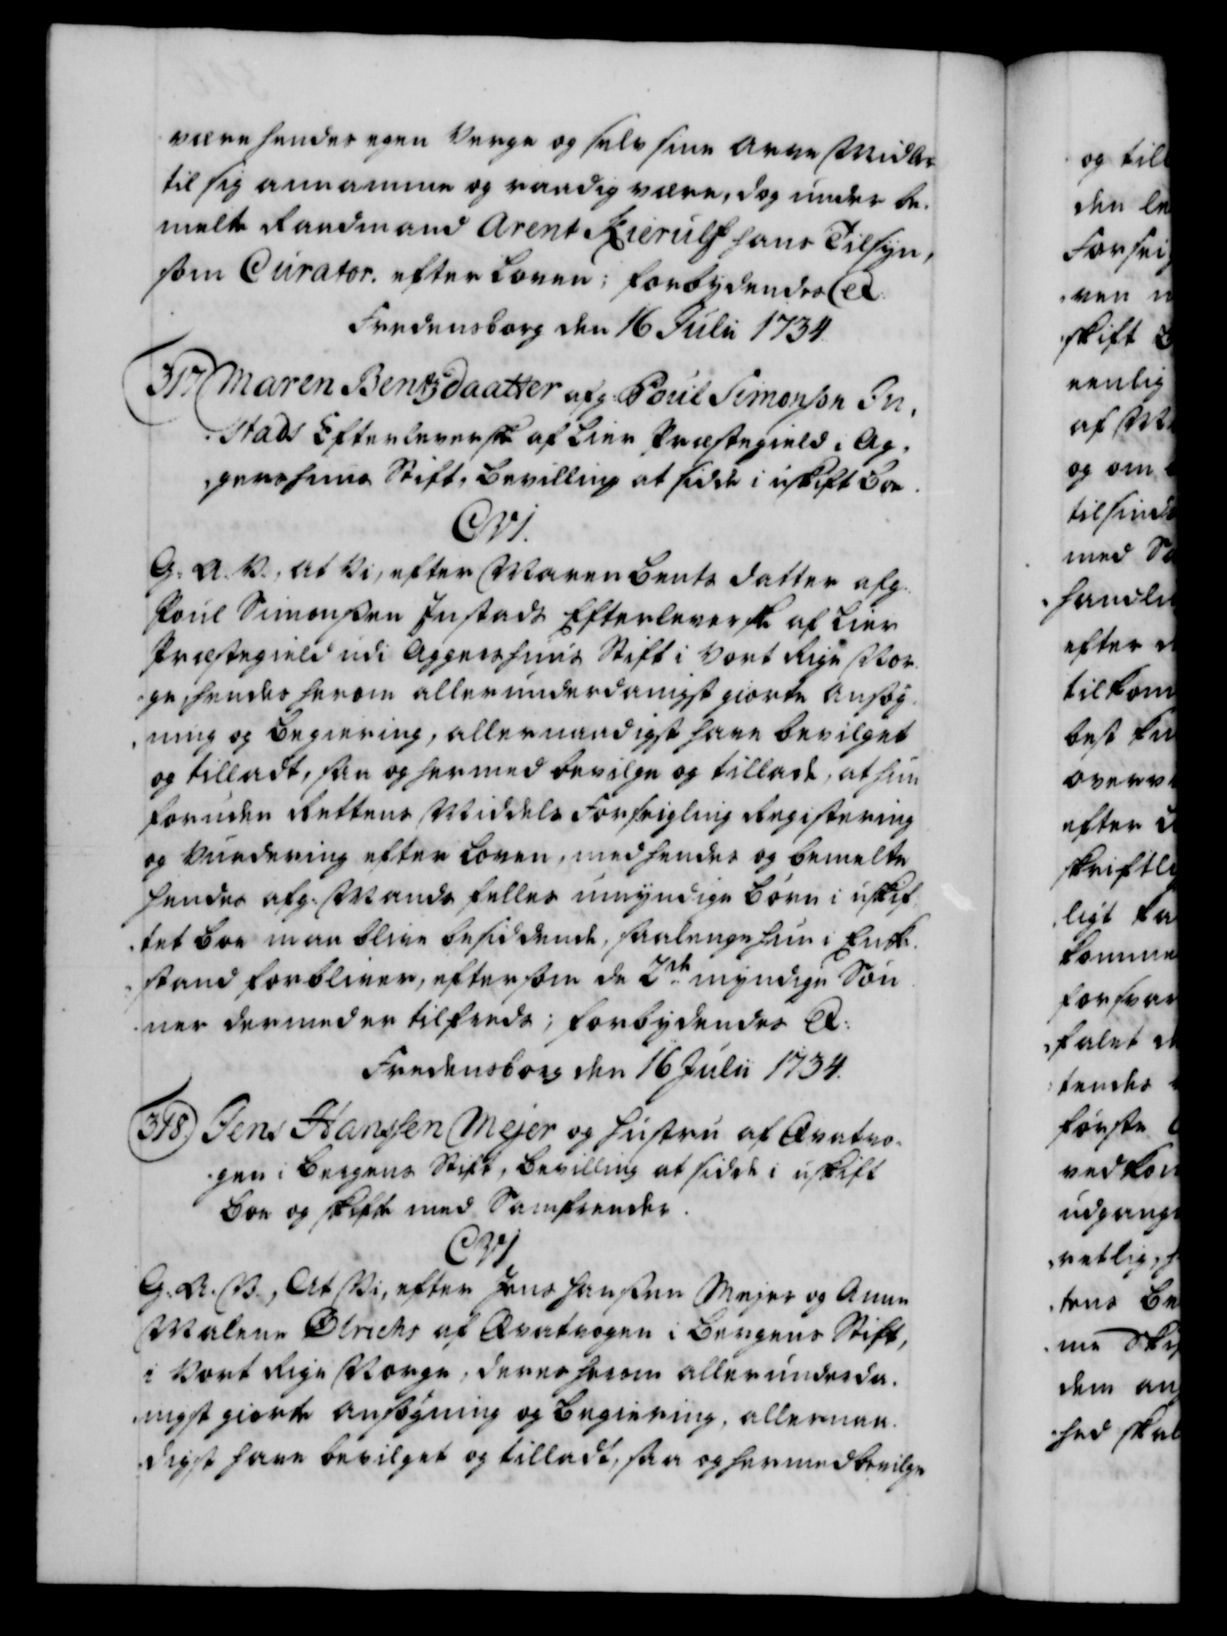 være hendes egen Verge og selv sine Arve Midler
til sig annamme og raadig være, dog under be-
melte Raadmand Arent Kierulf hans Tilsyn,
som Curator. efter Loven; forbydendes &c.
Fredensborg den 16 Julii 1734
317. Maren Bentzdaatter afg. Poul Simonsøn In-
stads Efterleverske af Lier Præstegield i Ag-
gershuus Stift, Bevilling at sidde i uskift Boe.
CVI.
G. A. V., At Vi, efter Maren Bents datter afg.
Poul Simonsen Instads Efterleverske af Lier
Præstegield udi Aggershuus Stift i Vort Rige Nor-
ge, hendes herom allerunderdanigst giorte Ansøg-
ning og Begiering, allernaadigst have bevilget
og tilladt, saa og hermed bevilge og tillade, at hun
foruden Rettens Middels Forseigling Registering
og Vurdering efter Loven, med hendes og bemelte
hendes afg. Mands felles umyndige Børn i uskif-
tet Boe maa blive besiddende, saalenge hun i Enke-
stand forbliver, eftersom de 2de myndige Søn-
ner dermed er tilfreds; forbydendes &c.
Fredensborg den 16 Julii 1734.
318. Jens Hanssen Mejer og Hustru af
gen i Bergens Stift, Bevilling at sidde i uskift
Boe og skifte med Samfrender.
CVI
G. A. V., At Vi, efter Jens Hanssen Mejer og Anne
Malene Olrichs af i Bergens Stift,
i Vort Rige Norge, deres herom allerunderda-
nigst giorte Ansøgning og Begiering, allernaa-
digst have bevilget og tilladt, saa og hermed bevilge
og till
den le
Forsei
ven
skift
venlig
af
og om
tilsinde
med
handle
efter
tilkom
best
overv
efter
skriftl
ligt
komme
forsvar
falet
tendes
første
vedkom
udgange
retlig,
tens Be
me Ski
dem an
hed skal